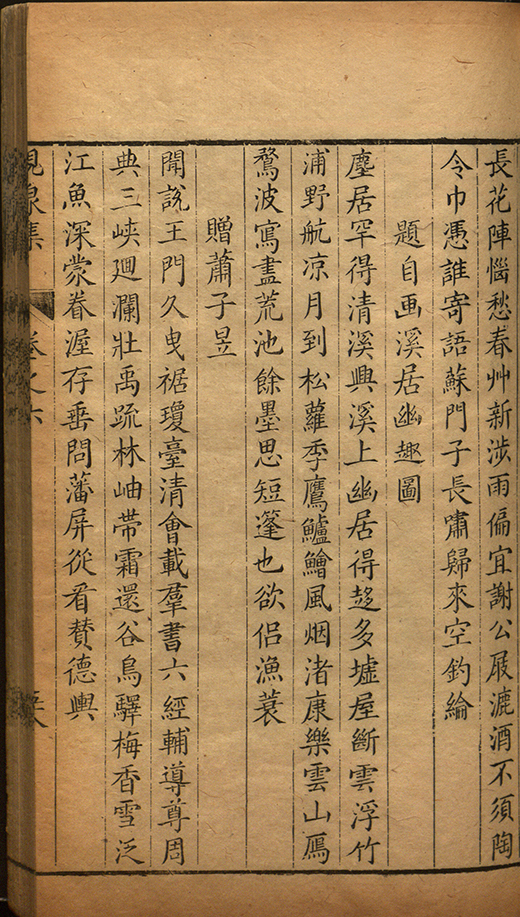 長花陣惱愁春艸新涉雨偏宜謝公屐漉酒不須陶
令巾憑誰寄語蘇門子長嘯歸來空釣綸
題自画溪居幽趣圖
塵居罕得清溪興溪上幽居得趍多墟屋斷雲浮竹
浦野航凉月到松蘿季鷹鱸鱠風烟渚康樂雲山鴈
鶩波寫盡荒池餘墨思短篷也欲侶漁蓑
贈蕭子昱
聞說王門久曳裾瓊臺清會載羣書六經輔導尊周
典三峽廻瀾壯禹疏林岫帶霜還谷鳥驛梅香雪泛
江魚深蒙眷渥存垂問藩屏從看賛德輿
集 卷之六